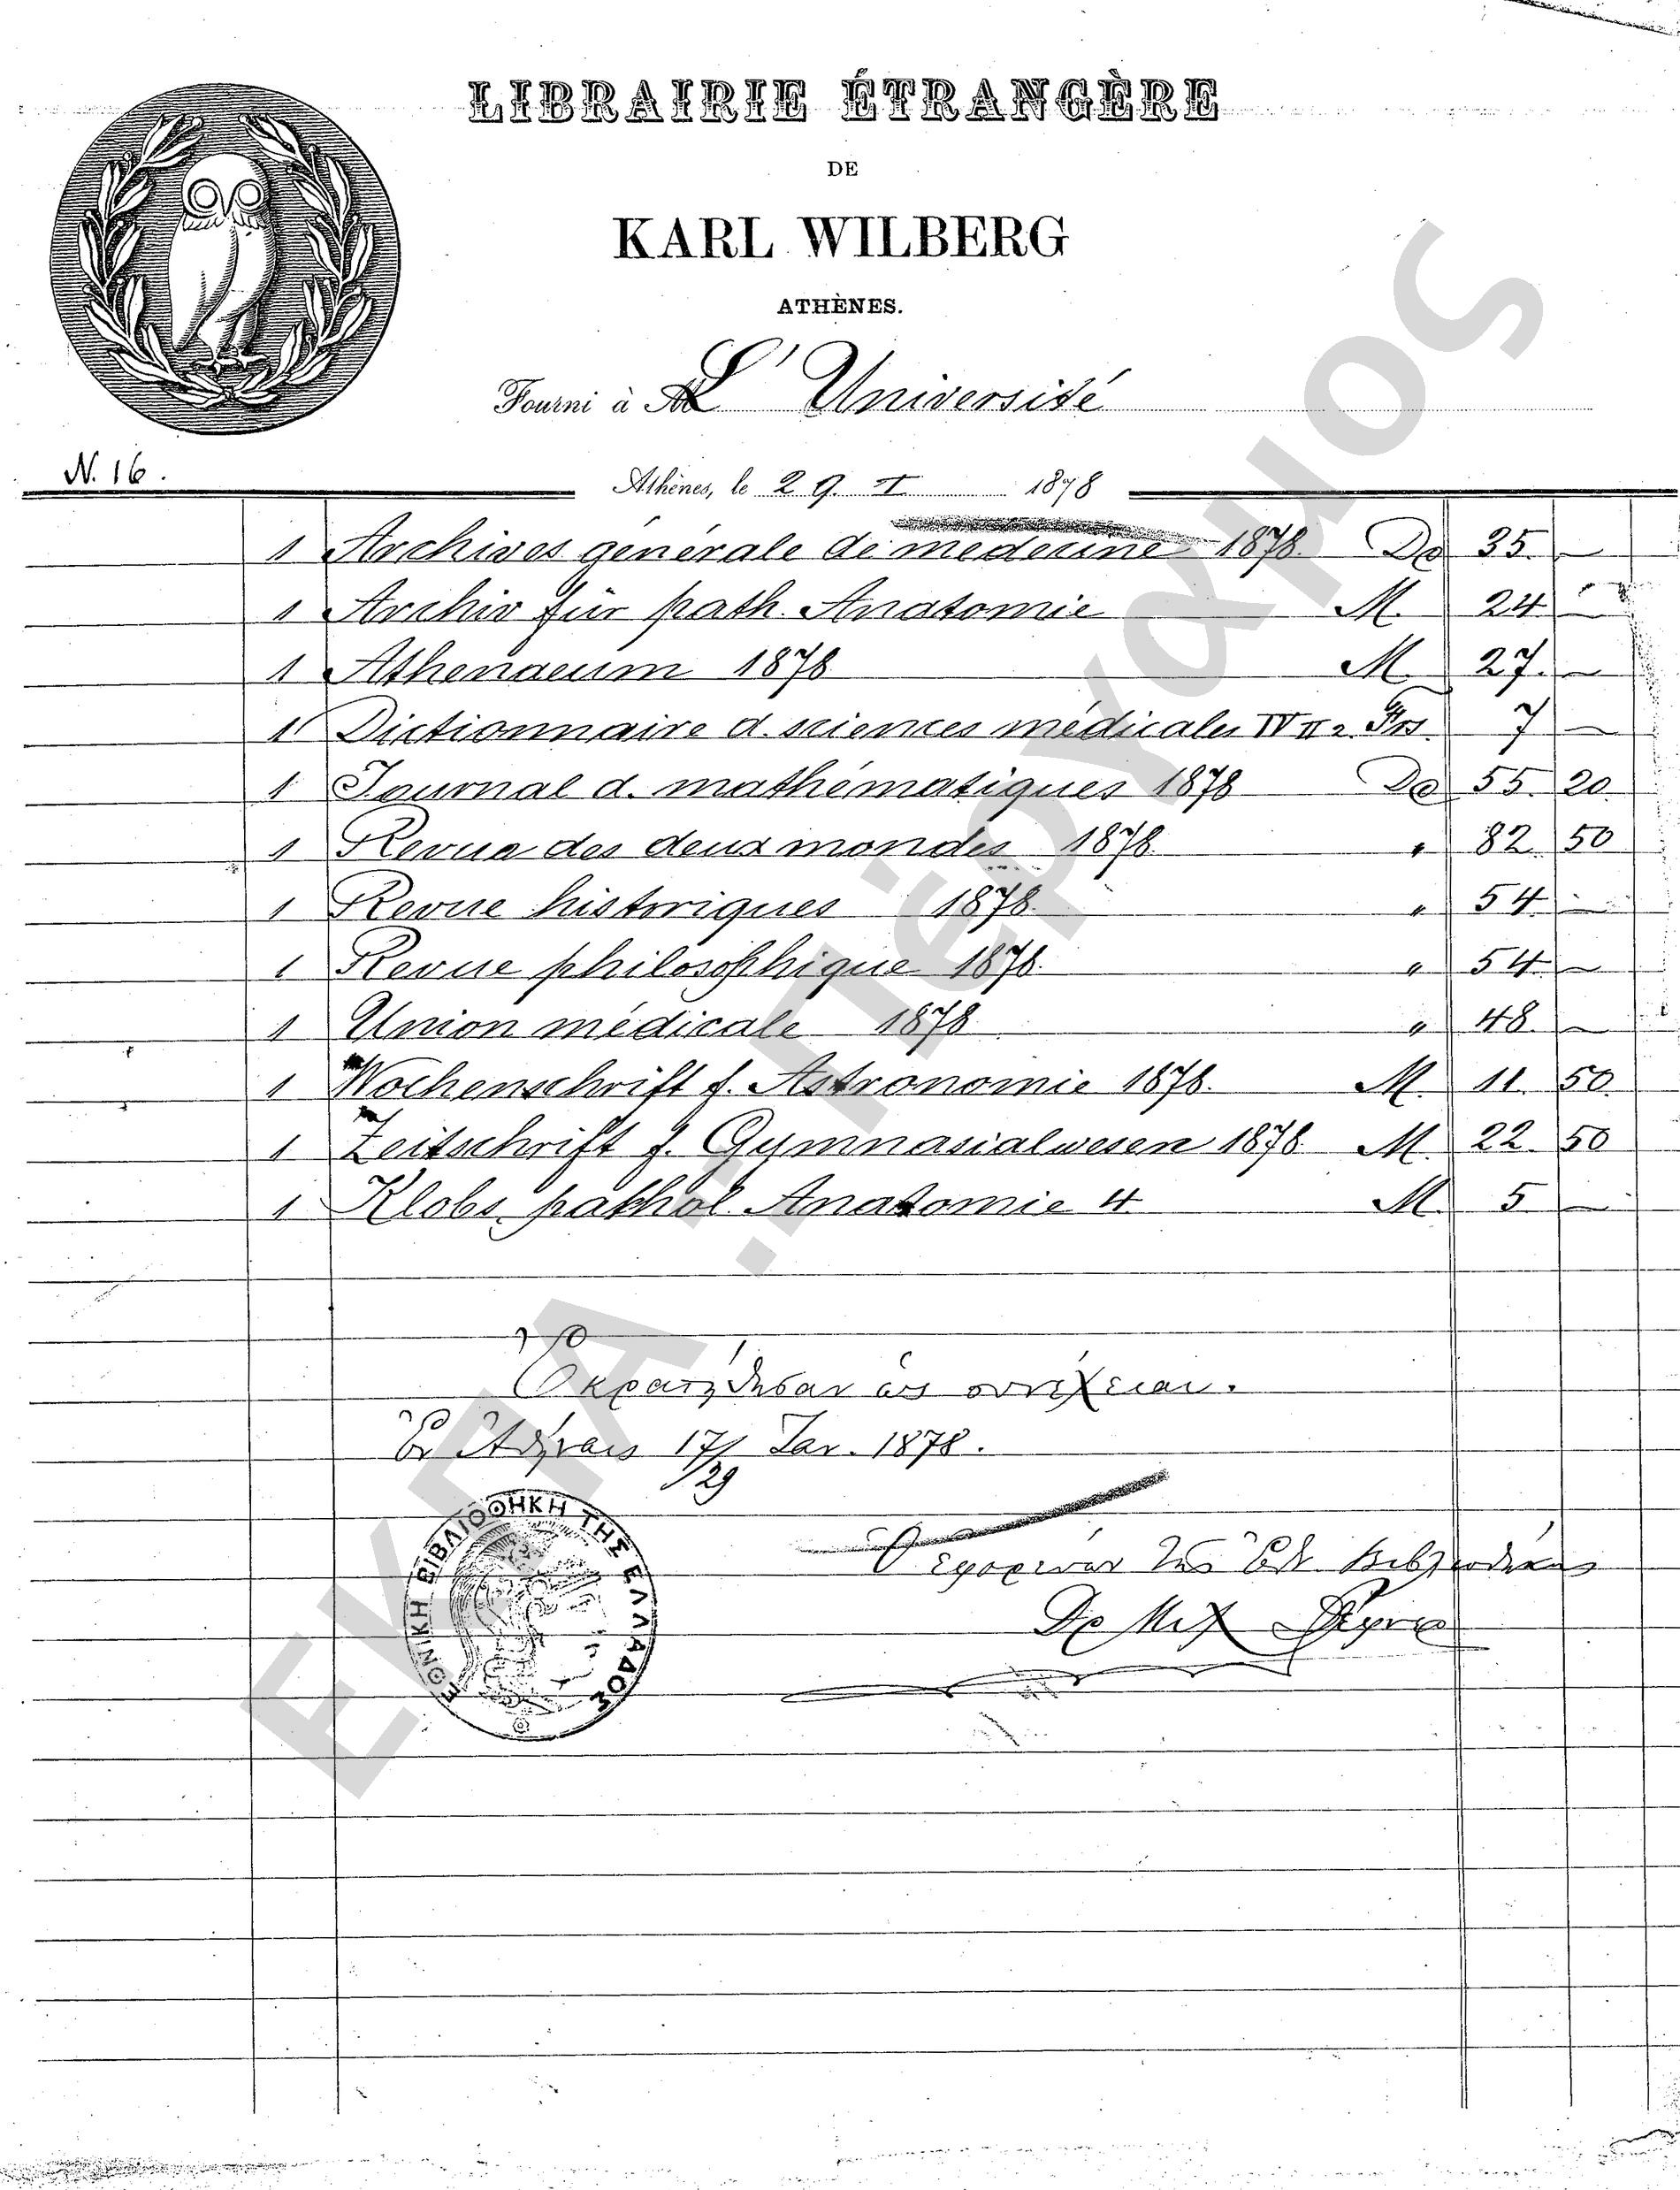 LIBRAIRIE ÉTRANGÈRE
DE
KARL WILBERG
ATHÈNES.
Fourni à L'Université
N. 16.
Athènes, le 29. I 1878
1 Archives générale de medecine 1878 Do 35. —
1 Archiv für path. Anatomie M. 24. —
1 Athenaeum 1878 M. 27. —
1 Dictionnaire d. sciences médicales IV II 2. Frs. 7 —
1 Journal d. mathématiques 1878 Do 55. 20.
1 Revue des deux mondes 1878 " 82. 50
1 Revue historiques 1878. " 54. —
1 Revue philosophique 1878. " 54. —
1 Union médicale 1878 " 48. —
1 Wochenschrift f. Astronomie 1878. M. 11. 50.
1 Zeitschrift f. Gymnasialwesen 1878. M. 22. 50
1 Klobs, pathol. Anatomie 4 M. 5 —
Ἐκρατήθησαν ὡς συνέχειαι.
Ἐν Ἀθήναις 17/29 Ιαν. 1878.
Ὁ ἐφορεύων τῆς Ἐθν Βιβλιοθήκης
Δρ Μιχ
ΕΘΝΙΚΗ ΒΙΒΛΙΟΘΗΚΗ ΤΗΣ ΕΛΛΑΔΟΣ
ΕΚΠΑ - Πέργαμος